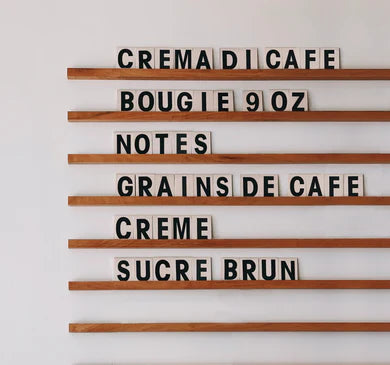 CREMA DI CAFE
BOUGIE 9 OZ
NOTES
GRAINS DE CAFE
CREME
SUCRE BRUN